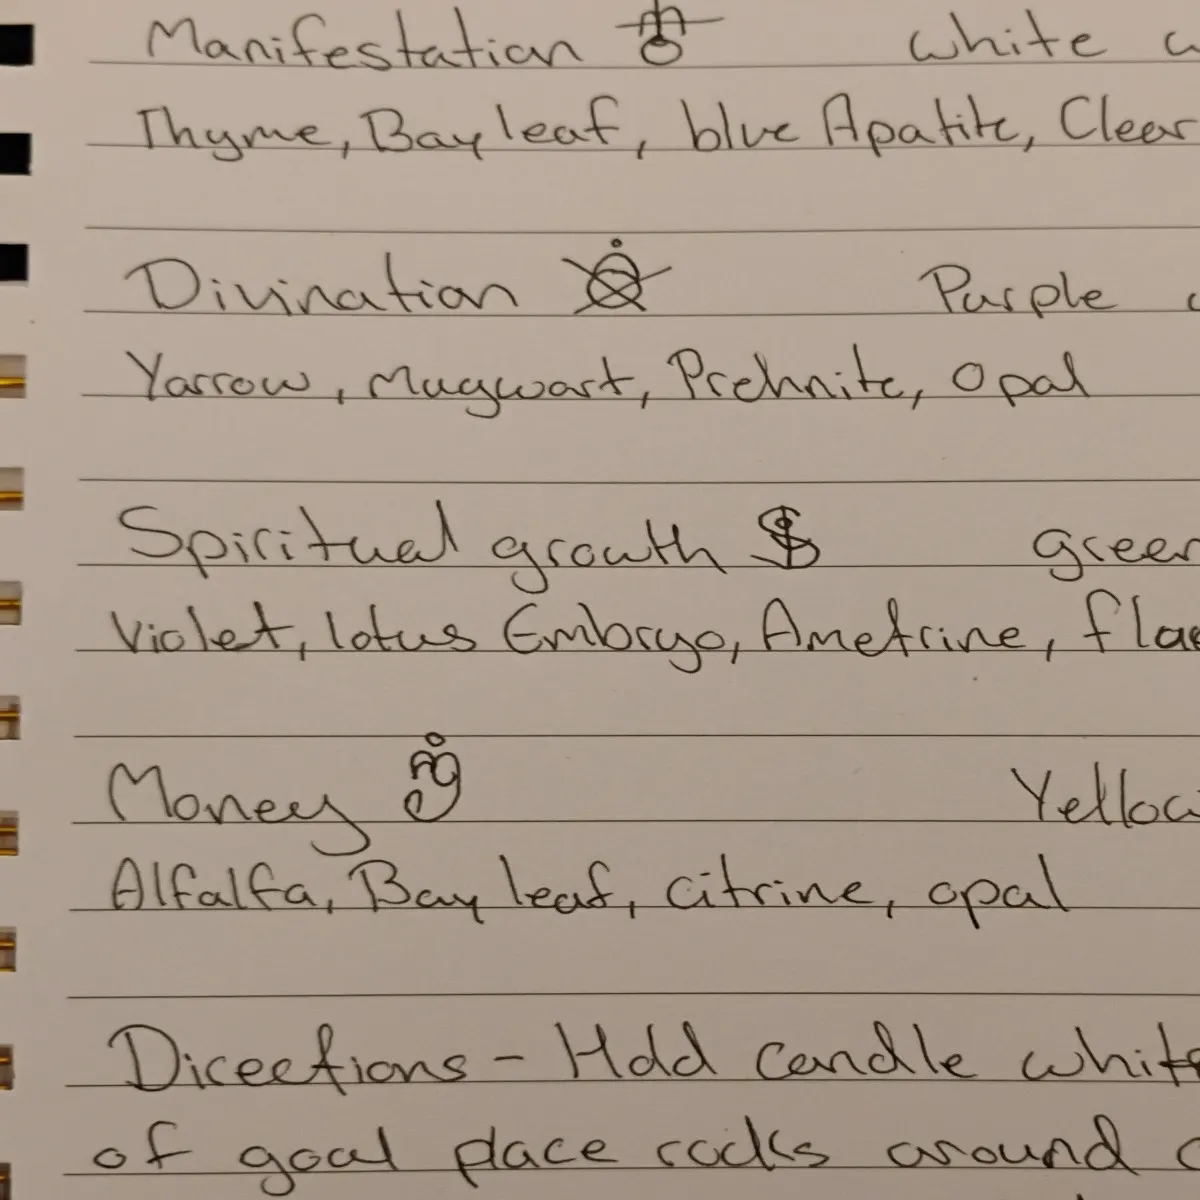 Manifestation white
Thyme, Bay leaf, blue Apatite, Clear
Divination Purple
Yarrow, Mugwort, Prehnite, Opal
Spiritual growth green
Violet, lotus Embryo, Ametrine,
Money
Alfalfa, Bay leaf, citrine, opal
Directions - Hold candle
of goal place rocks around